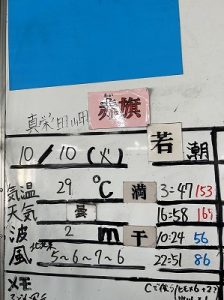 赤旗
真栄田岬
10/10(火) 若潮
気温 29 ℃ 満 3:47 153
天気 曇 16:58 161
波 2 m 干 10:24 56
風 北東 5~6~7~6 22:51 86
メモ